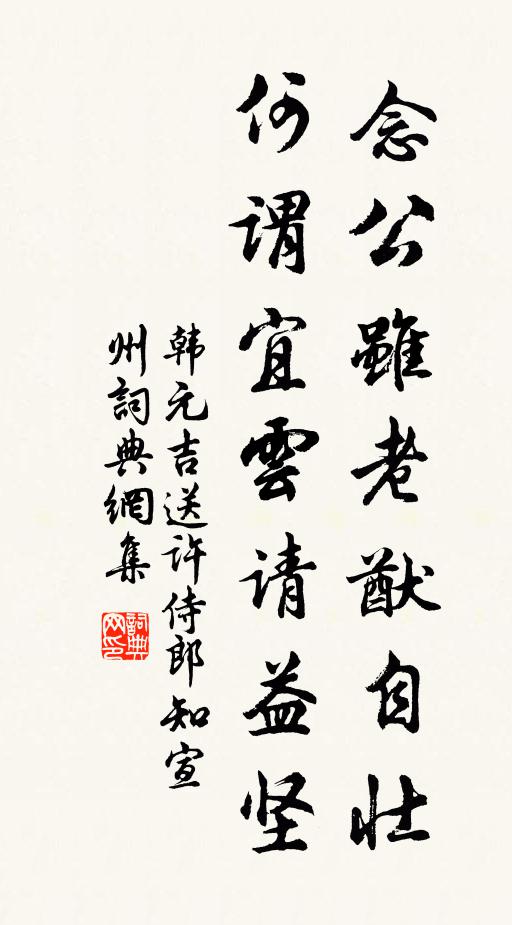 念公雖老猷自壮
何謂宜雲请益坚
韩元吉送许侍郎知宣
州詞典網集
詞典
网印